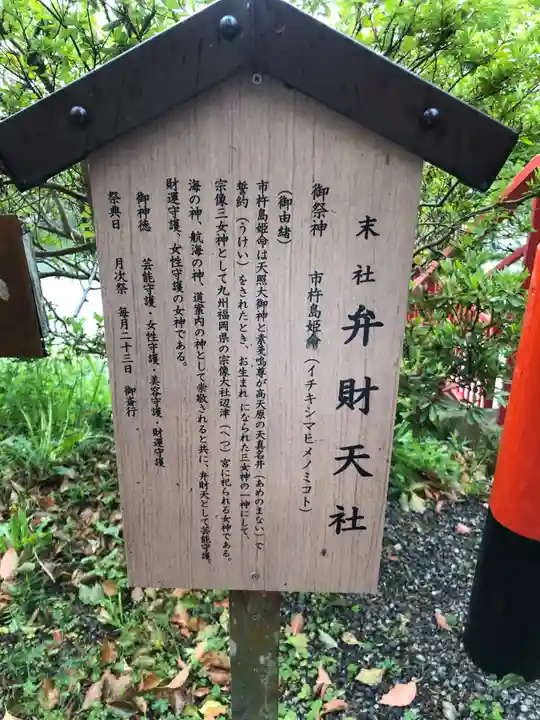 末社 弁財天社
御祭神 市杵島姫命（イチキシマヒメノミコト）
（御由緒）
市杵島姫命は天照大御神と素戔嗚尊が高天原の天真名井（あめのまない）で
誓約（うけい）をされたとき、お生まれになられた三女神の一神にして、
宗像三女神として九州福岡県の宗像大社辺津（へつ）宮に祀られる女神である。
海の神、航海の神、道案内の神として崇敬されると共に、弁財天として芸能守護、
財運守護、女性守護の女神である。
御神徳 芸能守護・女性守護・美容守護・財運守護
祭典日 月次祭 毎月二十三日 御斎行